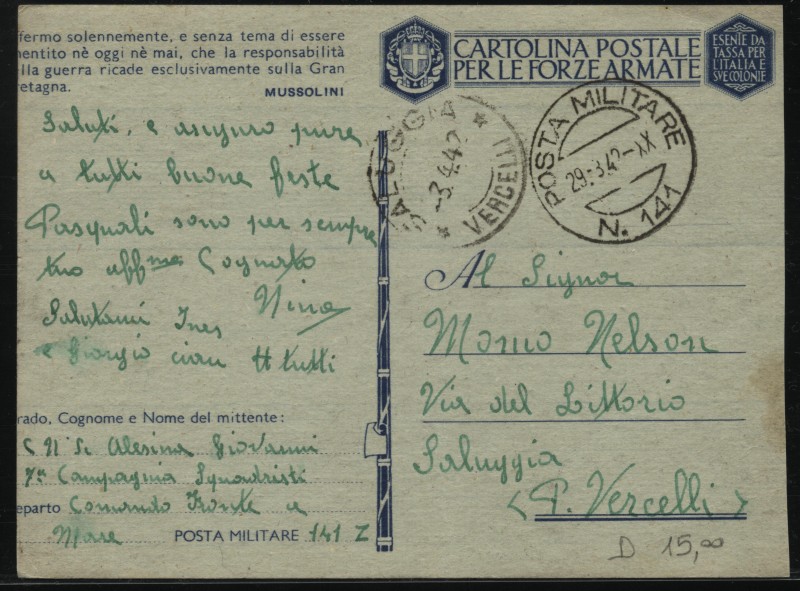 fermo solennemente, e senza tema di essere
entito nè oggi nè mai, che la responsabilità
lla guerra ricade esclusivamente sulla Gran
retagna.
MUSSOLINI
CARTOLINA POSTALE
PER LE FORZE ARMATE
ESENTE DA
TASSA PER
L'ITALIA E
SVE COLONIE
Saluti, e auguro pure
a tutti buone feste
Pasquali sono per sempre
tuo aff mo Cognato
Nino
Salutami Ines
e Giorgio ciau a tutti
SALUGGIA
-3.4.42
* VERCELLI *
POSTA MILITARE
29.3.42-XX
N. 141
Al Signor
Momo Nelson
Via del Littorio
Saluggia
(P. Vercelli)
rado, Cognome e Nome del mittente:
C N Sc Alesina Giovanni
7a Compagnia Squadristi
eparto Comando Fronte a
Mare POSTA MILITARE 141 Z
D 15,00